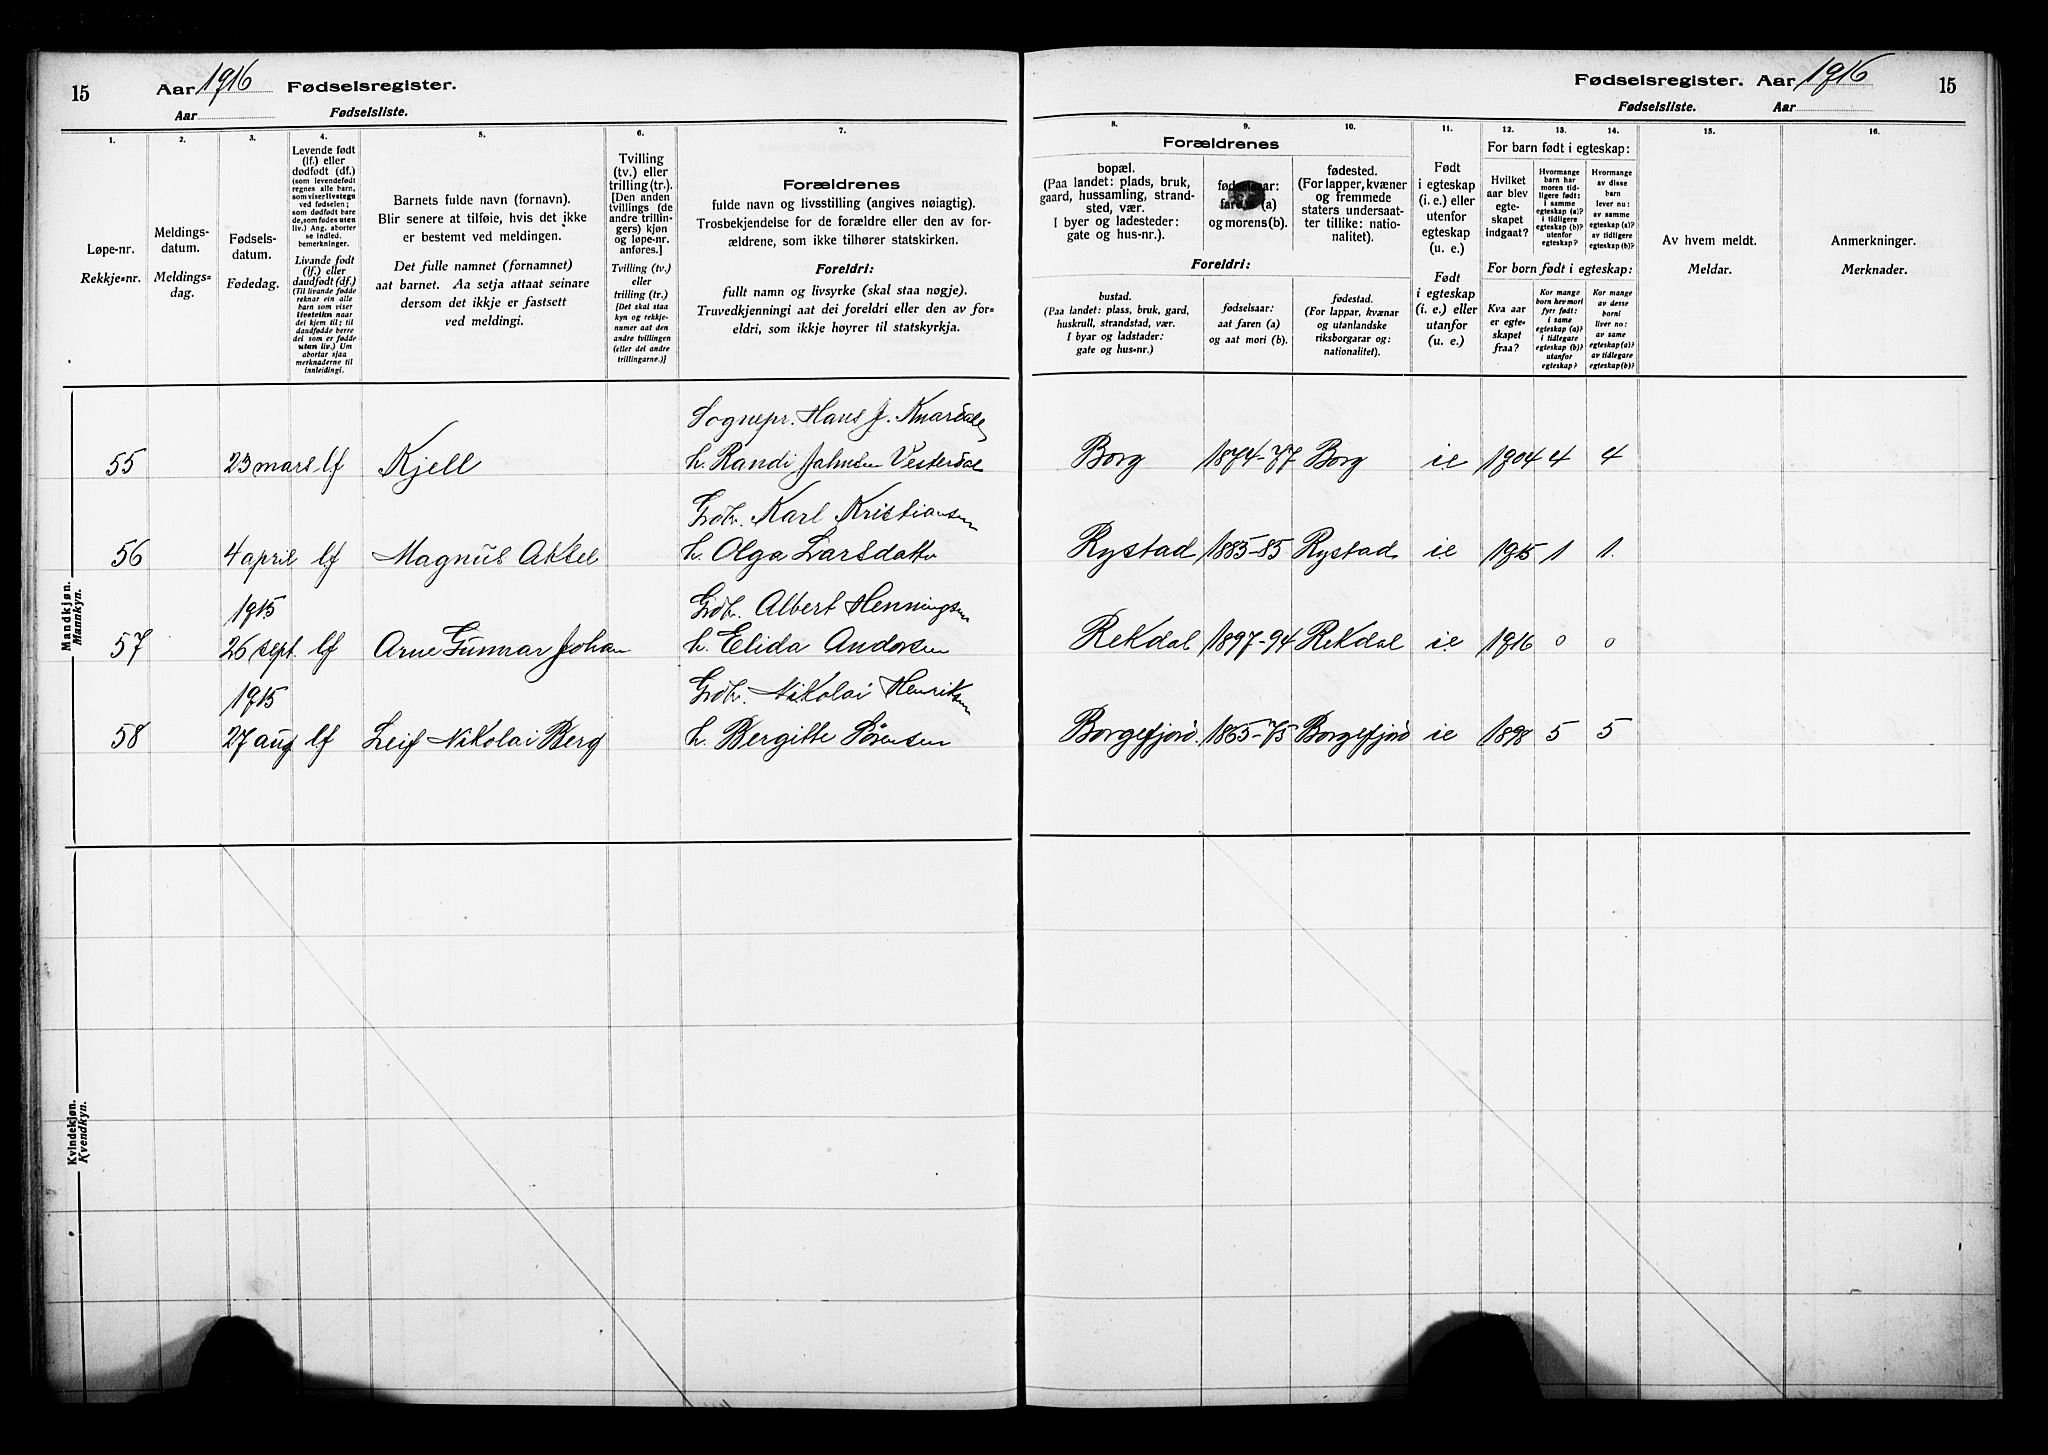 15 Aar 1916 Fødselsregister.
Aar Fødselsliste.
1.
Løpe-nr.
Rekkje=nr.
2.
Meldings-
datum.
Meldings=
dag.
3.
Fødsels-
datum.
Fødedag.
4.
Levende født
(lf.) eller
dødfødt (df.)
(som levendefødt
regnes alle barn,
som viser livstegn
ved fødselen;
som dødfødt bare
de, som fødes uten
liv.) Ang. aborter
se indled.
bemerkninger.
Livande født
(lf.) eller
daudfødt (df.)
(Til livande fødde
reknar ein alle
barn som viser
livsteikn naar
dei kjem til; til
daudfødde berre
dei som er fødde
utan liv.) Um
abortar sjaa
merknaderne til
innleidingi.
5.
Barnets fulde navn (fornavn).
Blir senere at tilføie, hvis det ikke
er bestemt ved meldingen.
Det fulle namnet (fornamnet)
aat barnet. Aa setja attaat seinare
dersom det ikkje er fastsett
ved meldingi.
6.
Tvilling
(tv.) eller
trilling (tr.).
[Den anden
tvillings (de
andre trillin-
gers) kjøn
og løpe-nr.
anføres.]
Tvilling (tv.)
eller
trilling (tr.)
[Det skal staa
kyn og rekkje-
numer aat den
andre tvillingen
(eller dei andre
trillingarne.)]
7.
Forældrenes
fulde navn og livsstilling (angives nøiagtig).
Trosbekjendelse for de forældre eller den av for-
ældrene, som ikke tilhører statskirken.
Foreldri:
fullt namn og livsyrke (skal staa nøgje).
Truvedkjenningi aat dei foreldri eller den av for-
eldri, som ikkje høyrer til statskyrkja.
Mandkjøn.
Mannkyn.
Sognepr. Hans J. Knardal
55 23 mars lf Kjell h. Randi Johnsen Vesterdal
Grdbr. Karl Kristiansen
56 4 april lf Magnus Aksel h. Olga Larsdatter
1915 Grdbr. Albert Henningsen
57 26 sept. lf Arne Gunnar Johan h. Elida Andorsen
1915 Grdbr. Nikolai Henriksen
58 27 aug lf Leif Nikolai Berg h. Bergitte Sørensen
Kvindekjøn.
Kvendkyn.
Fødselsregister. Aar 1916 15
Fødselsliste. Aar
Forældrenes
8.
bopæl.
(Paa landet: plads, bruk,
gaard, hussamling, strand-
sted, vær.
I byer og ladesteder:
gate og hus-nr.).
9.
fødselsaar:
farens (a)
og morens (b).
10.
fødested.
(For lapper, kvæner
og fremmede
staters undersaat-
ter tillike: natio-
nalitet).
Foreldri:
bustad.
(Paa landet: plass, bruk, gard,
huskrull, strandstad, vær.
I byar og ladstader:
gate og hus=nr.)
fødselsaar:
aat faren (a)
og aat mori (b).
fødestad.
(For lappar, kvænar
og utanlandske
riksborgarar og:
nationalitet).
11.
Født
i egteskap
(i. e.) eller
utenfor
egteskap
(u. e.)
Født
i egteskap
(i. e.) eller
utanfor
(u. e.)
For barn født i egteskap:
12.
Hvilket
aar blev
egte-
skapet
indgaat?
13.
Hvormange
barn har
moren tid-
ligere født:
i samme
egteskap (a)?
i tidligere
egteskap (b)?
utenfor
egteskap?
14.
Hvormange
av disse
barn
lever nu:
av samme
egteskap (a)?
av tidligere
egteskap (b)?
For born født i egteskap:
Kva aar
er egte-
skapet
fraa?
Kor mange
born hev mori
fyrr født:
i same
egteskap (a)?
i tidlegare
egteskap (b)?
utanfor
egteskap?
Kor mange
av desse
borni
liver no:
av same
egteskap (a)?
av tidlegare
egteskap (b)?
15.
Av hvem meldt.
Meldar.
16.
Anmerkninger.
Merknader.
Borg 1874-77 Borg i.e 1904 4 4
Rystad 1885-85 Rystad i.e 1915 1 1.
Rekdal 1897-94 Rekdal i.e 1916 0 0
Borgefjord. 1865-75 Borgefjord i.e 1898 5 5